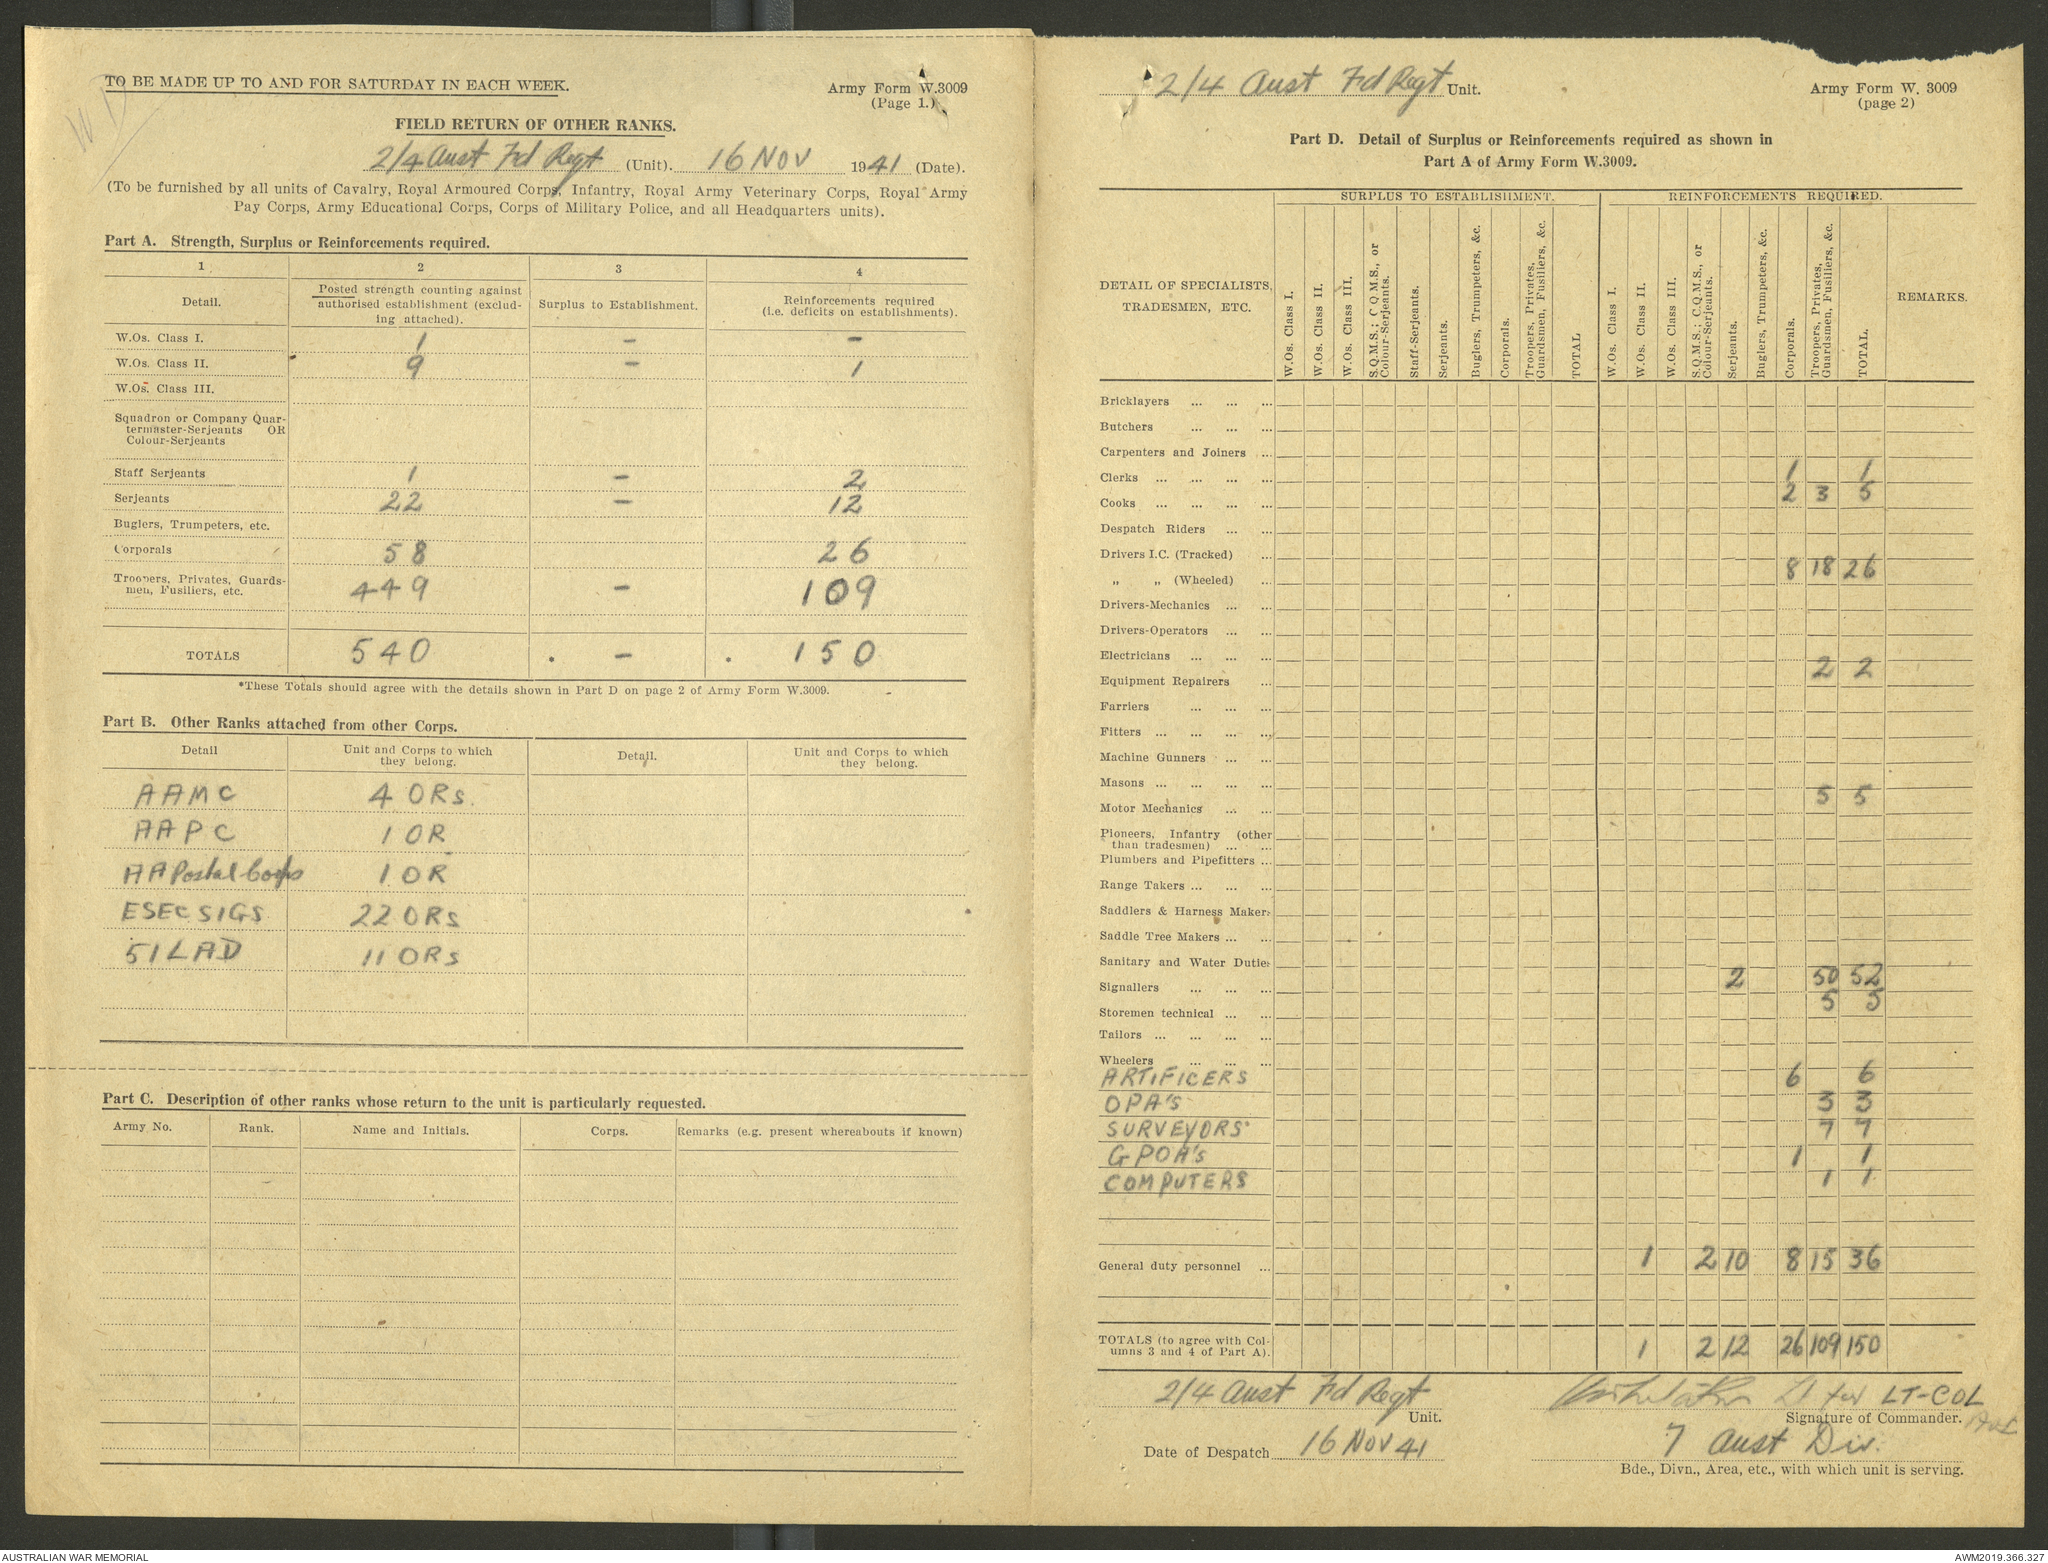 WD
TO BE MADE UP TO AND FOR SATURDAY IN EACH WEEK.
Army Form W.3009
(Page 1.)
FIELD RETURN OF OTHER RANKS.
2/4 Aust Fd Regt (Unit). 16 NOV 1941 (Date).
(To be furnished by all units of Cavalry, Royal Armoured Corps, Infantry, Royal Army Veterinary Corps, Royal Army
Pay Corps, Army Educational Corps, Corps of Military Police, and all Headquarters units).
Part A. Strength, Surplus or Reinforcements required.
1 2 3 4
Detail. Posted strength counting against authorised establishment (excluding attached). Surplus to Establishment. Reinforcements required (i.e. deficits on establishments).
W.Os. Class I. 1 - -
W.Os. Class II. 9 - 1
W.Os. Class III.
Squadron or Company Quar-
termaster-Serjeants OR
Colour-Serjeants
Staff Serjeants 1 - 2
Serjeants 22 - 12
Buglers, Trumpeters, etc.
Corporals 58 26
Troopers, Privates, Guards-
men, Fusiliers, etc. 449 - 109
TOTALS 540 . - . 150
*These Totals should agree with the details shown in Part D on page 2 of Army Form W.3009.
Part B. Other Ranks attached from other Corps.
Detail Unit and Corps to which they belong. Detail. Unit and Corps to which they belong.
AAMC 4 ORs.
AAPC 1 OR
AAPostal Corps 1 OR
ESEC SIGS 22 ORs
51 LAD 11 ORs
Part C. Description of other ranks whose return to the unit is particularly requested.
Army No. Rank. Name and Initials. Corps. Remarks (e.g. present whereabouts if known)
2/4 Aust Fd Regt Unit.
Army Form W. 3009
(page 2)
Part D. Detail of Surplus or Reinforcements required as shown in
Part A of Army Form W.3009.
SURPLUS TO ESTABLISHMENT. REINFORCEMENTS REQUIRED.
DETAIL OF SPECIALISTS,
TRADESMEN, ETC.
W.Os. Class I.
W.Os. Class II.
W.Os. Class III.
S.Q.M.S.; C.Q.M.S., or Colour-Serjeants.
Staff-Serjeants.
Serjeants.
Buglers, Trumpeters, &c.
Corporals.
Troopers, Privates, Guardsmen, Fusiliers, &c.
TOTAL
W.Os. Class I.
W.Os. Class II.
W.Os. Class III.
S.Q.M.S.; C.Q.M.S., or Colour-Serjeants.
Serjeants.
Buglers, Trumpeters, &c.
Corporals.
Troopers, Privates, Guardsmen, Fusiliers, &c.
TOTAL.
REMARKS.
Bricklayers ... ... ...
Butchers ... ... ...
Carpenters and Joiners ...
Clerks ... ... ... ... 1 1
Cooks ... ... ... ... 2 3 5
Despatch Riders ... ...
Drivers I.C. (Tracked) ...
" " (Wheeled) ... 8 18 26
Drivers-Mechanics ... ...
Drivers-Operators ... ...
Electricians ... ... ...
Equipment Repairers ... 2 2
Farriers ... ... ...
Fitters ... ... ... ...
Machine Gunners ... ...
Masons ... ... ... ...
Motor Mechanics ... ... 5 5
Pioneers, Infantry (other
than tradesmen) ... ...
Plumbers and Pipefitters ...
Range Takers ... ... ...
Saddlers & Harness Makers
Saddle Tree Makers ... ...
Sanitary and Water Duties
Signallers ... ... ... 2 50 52
Storemen technical ... ... 5 5
Tailors ... ... ... ...
Wheelers ... ... ...
ARTIFICERS 6 6
OPA's 3 3
SURVEYORS 7 7
GPOA's 1 1
COMPUTERS 1 1
General duty personnel ... 1 2 10 8 15 36
TOTALS (to agree with Col-
umns 3 and 4 of Part A). 1 2 12 26 109 150
2/4 Aust Fd Regt Unit.
Lt for LT-COL
Signature of Commander.
Date of Despatch 16 NOV 41
7 Aust Div.
Bde., Divn., Area, etc., with which unit is serving.
AUSTRALIAN WAR MEMORIAL
AWM2019.366.327